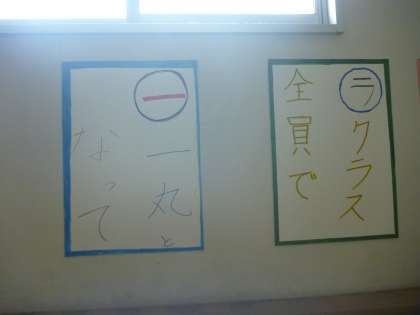 ラ クラス
全員で
一 一丸と
なって